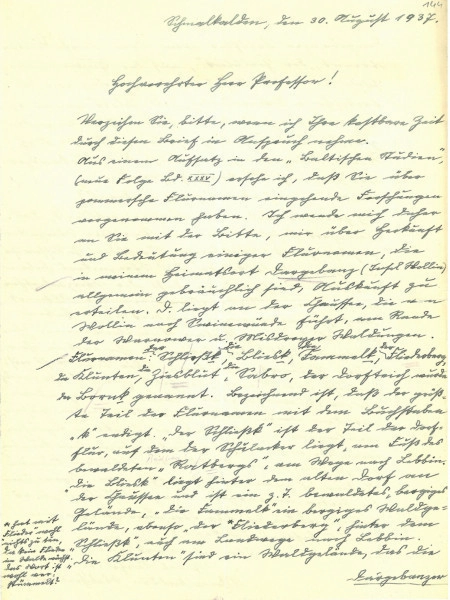 144
Schmalkalden, den 30. August 1937.
Hochverehrter Herr Professor!
Verzeihen Sie, bitte, wenn ich Ihre kostbare Zeit
durch diesen Brief in Anspruch nehme.
Aus einem Aufsatz in den „Baltischen Studien“,
(neue Folge Bd. XXXV) ersehe ich, daß Sie über
pommersche Flurnamen eingehende Forschungen
vorgenommen haben. Ich wende mich daher
an Sie mit der Bitte, mir über Herkunft
und Bedeutung einiger Flurnamen, die
in meinem Heimatsort Dargebanz (Insel Wollin)
allgemein gebräuchlich sind, Auskunft zu
erteilen. D. liegt an der Chaussee, die von
Wollin nach Swinemünde führt, am Rande
der Warnower u. Misdroyer Waldungen.
Flurnamen: der Schließk, die Bliesk, die Dammelk, der Fliederberg,
die Klünten, die Ziesblüt, die Sabro, der Dorfteich wurde
der Bornk genannt. Bezeichnend ist, daß der größ-
te Teil der Flurnamen mit dem Buchstaben
„k“ endigt. „Der Schließk“ ist der Teil der Dorf-
flur, auf dem der Schulacker liegt, am Fuß des
bewaldeten „Ratbergs“, am Wege nach Lebbin.
„Die Bliesk“ liegt hinter dem alten Dorf an
der Chaussee und ist ein z. T. bewaldetes, bergiges
Gelände, „die Dammelk“ ein bergiges Waldge-
lände, ebenso der „Fliederberg“ hinter dem
Schließk, auch am Landwege nach Lebbin.
„Die Klünten“ sind ein Waldgelände, das die
Dargebanzer
hat mit
Flieder wohl
nichts zu tun,
da kein Flieder
im Walde wächst.
Das Wort ist
wohl ver-
stümmelt?